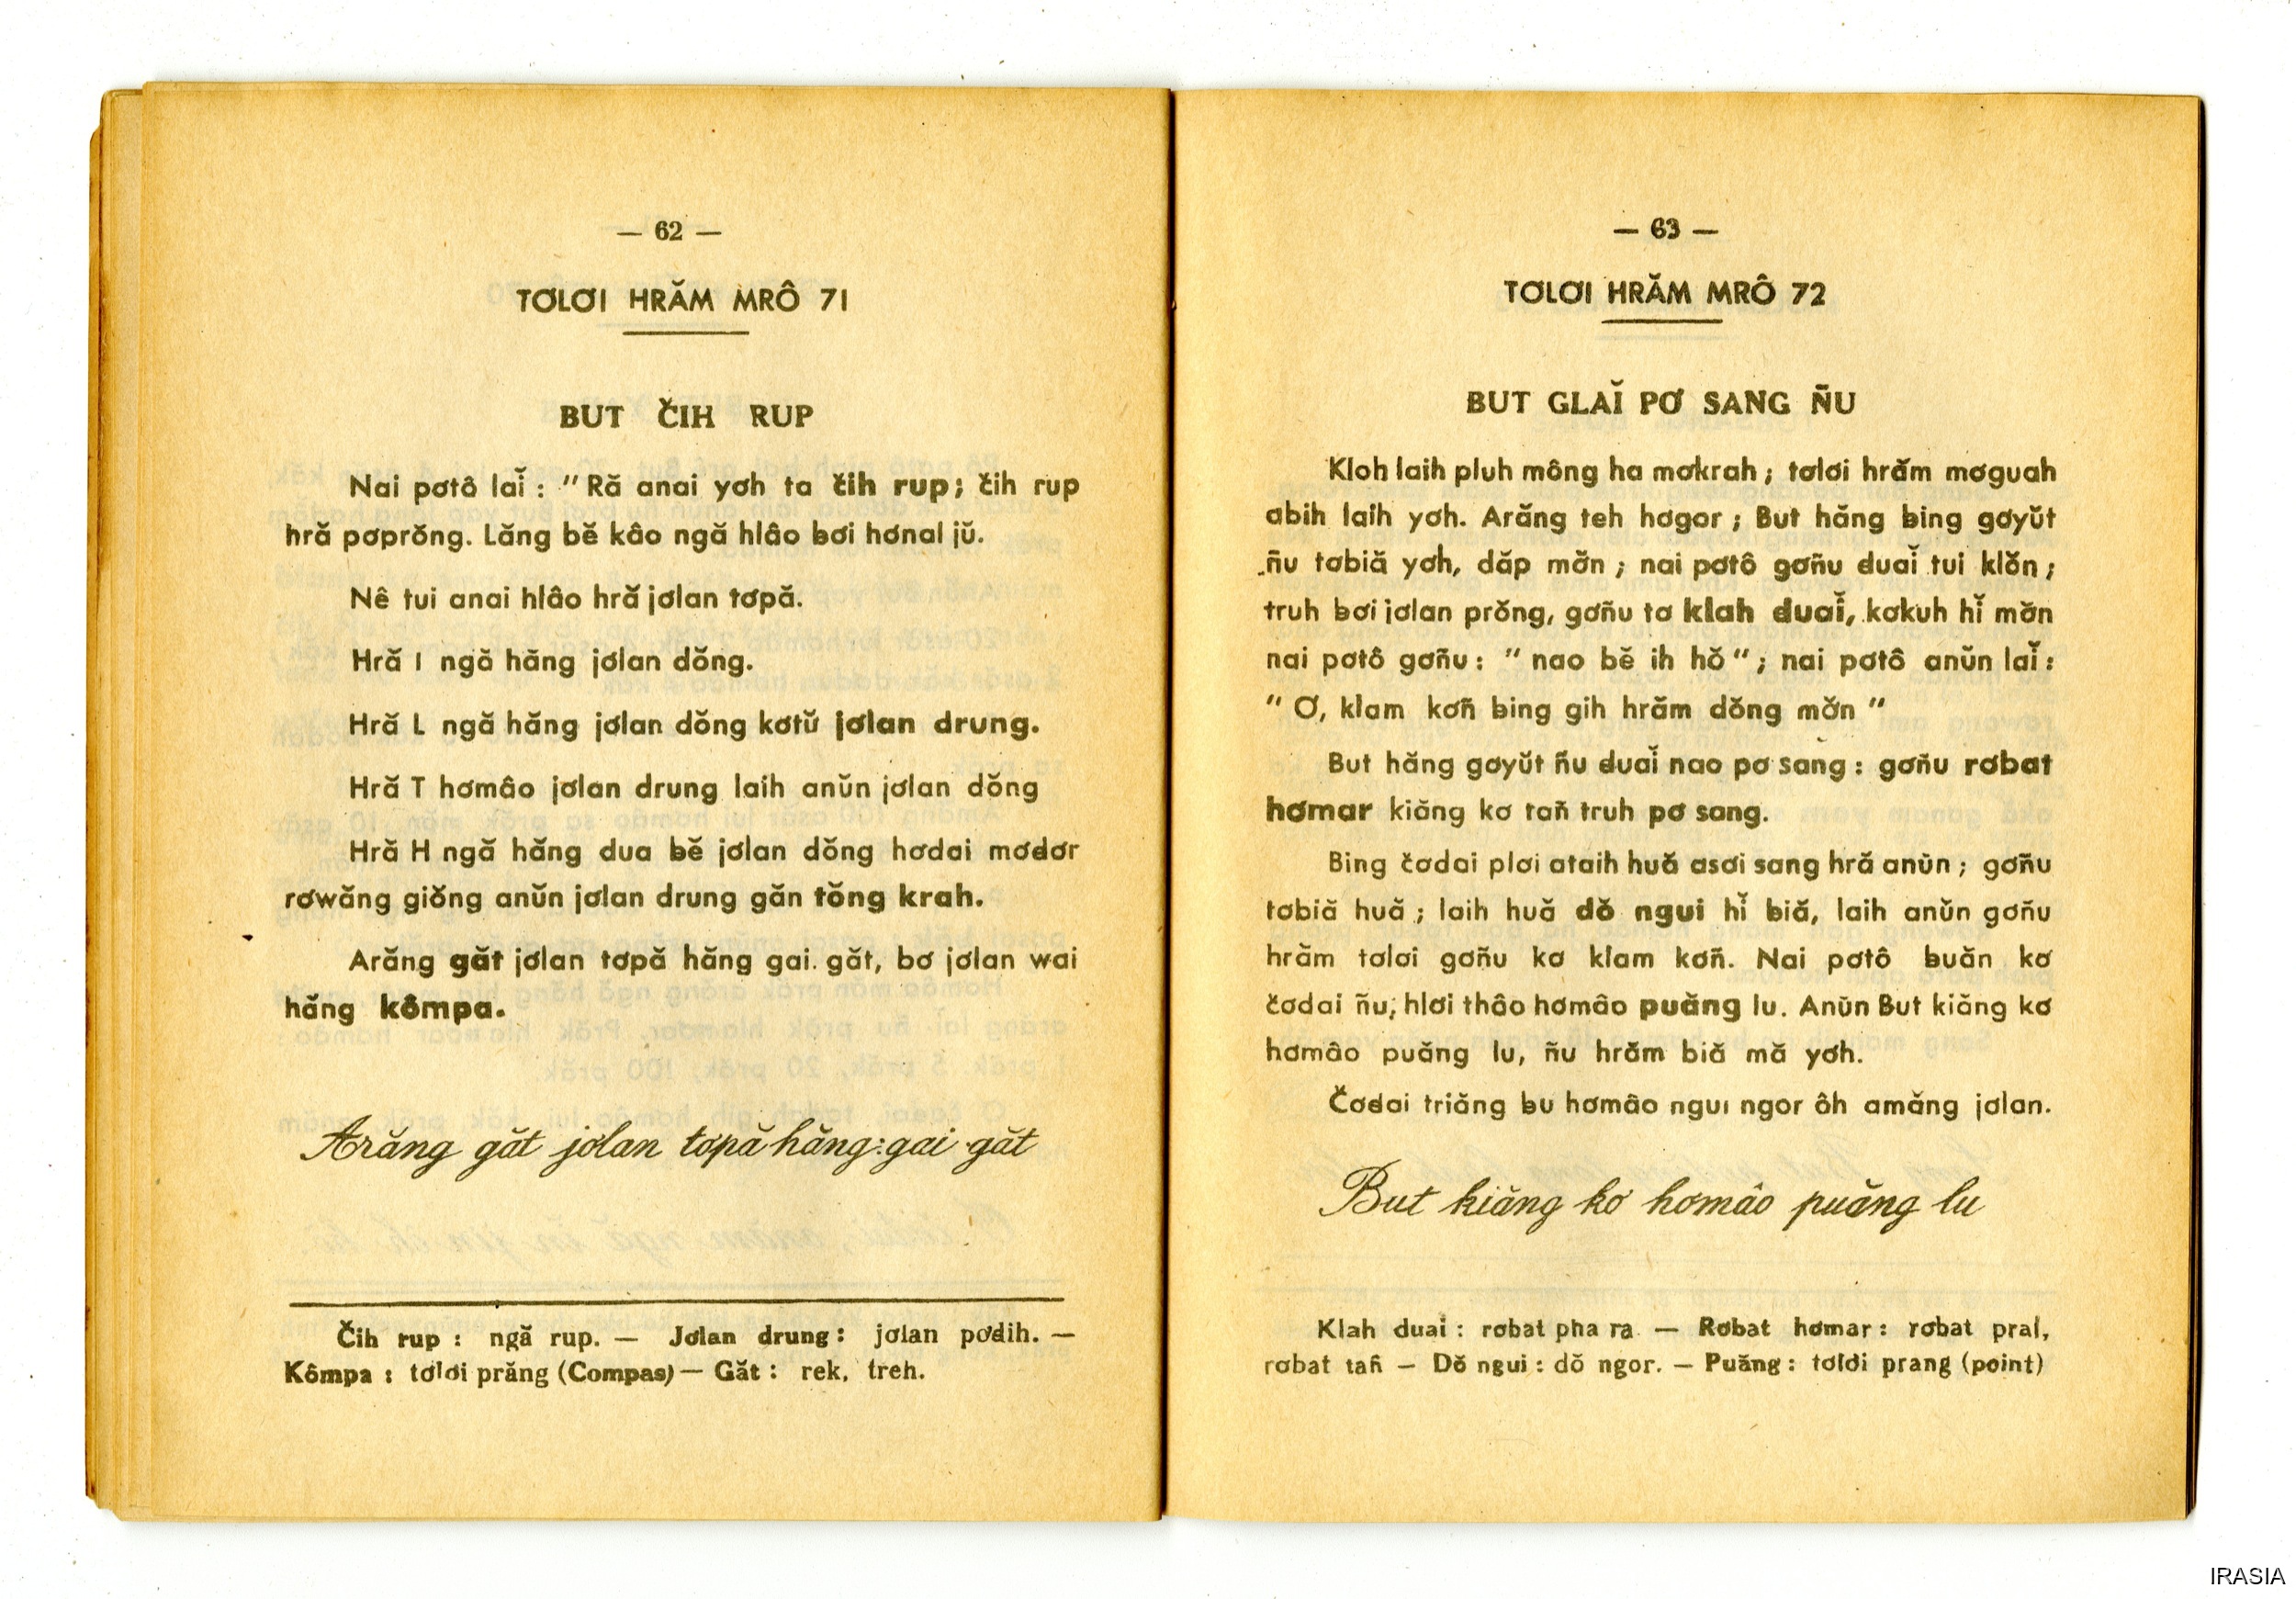 — 62 —
TƠLƠI HRĂM MRÔ 71
BUT ČIH RUP
Nai pơtô laĭ : " Ră anai yơh ta čih rup; čih rup
hră pơprŏng. Lăng bĕ kâo ngă hlâo bơi hơnal jŭ.
Nê tui anai hlâo hră jơlan tơpă.
Hră I ngă hăng jơlan dŏng.
Hră L ngă hăng jơlan dŏng kơtŭ jơlan drung.
Hră T hơmâo jơlan drung laih anŭn jơlan dŏng
Hră H ngă hăng dua bĕ jơlan dŏng hơdai mơdơr
rơwăng giŏng anŭn jơlan drung găn tŏng krah.
Arăng găt jơlan tơpă hăng gai găt, bơ jơlan wai
hăng kômpa.
Arăng găt jơlan tơpă hăng gai găt
Čih rup : ngă rup. — Jơlan drung : jơlan pơdih. —
Kômpa : tơlơi prăng (Compas) — Găt : rek, treh.
— 63 —
TƠLƠI HRĂM MRÔ 72
BUT GLAĬ PƠ SANG ÑU
Kloh laih pluh mông ha mơkrah ; tơlơi hrăm mơguah
abih laih yơh. Arăng teh hơgor ; But hăng bing gơyŭt
ñu tơbiă yơh, dăp mơ̆n ; nai pơtô gơñu duaĭ tui klŏn ;
truh bơi jơlan prŏng, gơñu tơ klah duaĭ, kơkuh hĭ mơ̆n
nai pơtô gơñu : " nao bĕ ih hŏ " ; nai pơtô anŭn laĭ :
" Ơ, klam kơñ bing gih hrăm dŏng mơ̆n "
But hăng gơyŭt ñu duaĭ nao pơ sang : gơñu rơbat
hơmar kiăng kơ tañ truh pơ sang.
Bing čơdai plơi ataih huă asơi sang hră anŭn ; gơñu
tơbiă huă ; laih huă dŏ ngui hĭ biă, laih anŭn gơñu
hrăm tơlơi gơñu kơ klam kơñ. Nai pơtô buăn kơ
čơdai ñu; hlơi thâo hơmâo puăng lu. Anŭn But kiăng kơ
hơmâo puăng lu, ñu hrăm biă mă yơh.
Čơdai triăng bu hơmâo ngui ngor ôh amăng jơlan.
But kiăng kơ hơmâo puăng lu
Klah duaĭ : rơbat pha ra — Rơbat hơmar : rơbat pral,
rơbat tañ — Dŏ ngui : dŏ ngor. — Puăng : tơlơi prang (point)
IRASIA